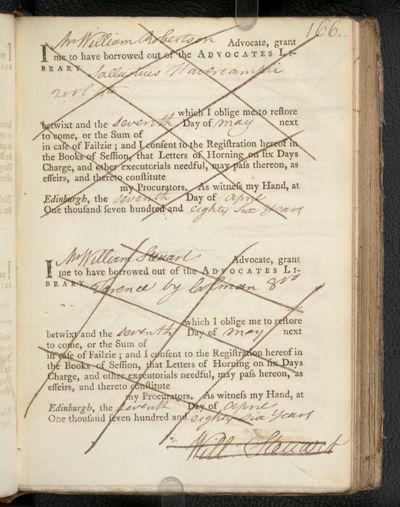 166.
I Mr William Robertson Advocate, grant
me to have borrowed out of the ADVOCATES LI-
BRARY Sallustius Havercampii
2 vol
which I oblige me to reſtore
betwixt and the seventh Day of May next
to come, or the Sum of
in caſe of Failzie; and I conſent to the Regiſtration hereof in
the Books of Seſſion, that Letters of Horning on ſix Days
Charge, and other executorials needful, may paſs thereon, as
effeirs, and thereto conſtitute
my Procurators. As witneſs my Hand, at
Edinburgh, the seventh Day of Aprile
One thouſand ſeven hundred and eighty six Years
I Mr William Steuart Advocate, grant
me to have borrowed out of the ADVOCATES LI-
BRARY Terence by Colman 8vo
which I oblige me to reſtore
betwixt and the seventh Day of May next
to come, or the Sum of
in caſe of Failzie; and I conſent to the Regiſtration hereof in
the Books of Seſſion, that Letters of Horning on ſix Days
Charge, and other executorials needful, may paſs hereon, as
effeirs, and thereto conſtitute
my Procurators. As witneſs my Hand, at
Edinburgh, the seventh Day of Aprile
One thouſand ſeven hundred and eighty six Years
Will Steuart